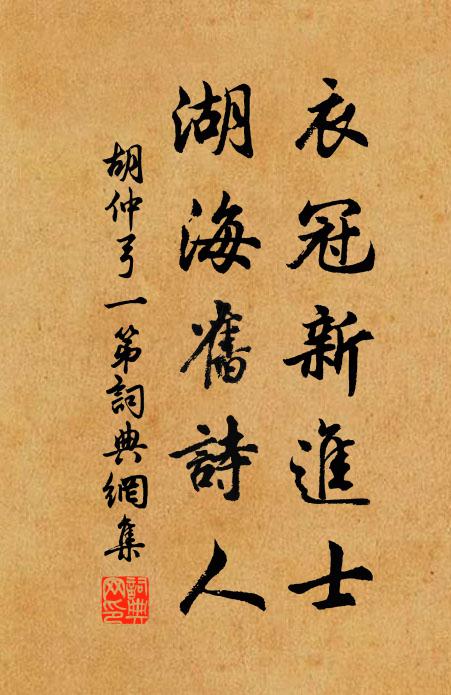 衣冠新進士
湖海舊詩人
胡仲弓一第詞典網集
詞典網印